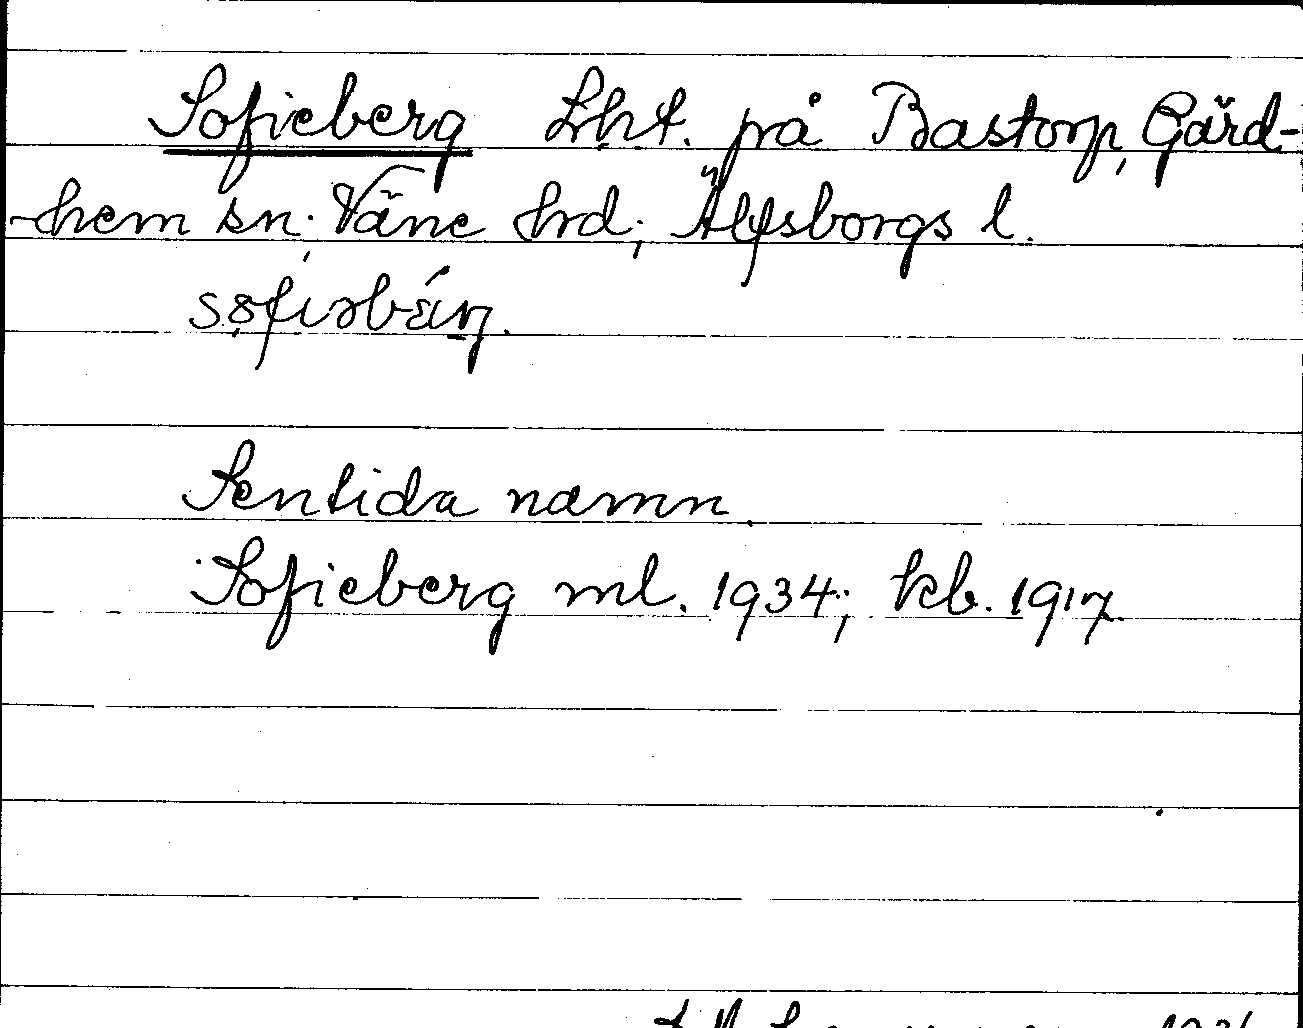 Sofieberg Lht. på Bastorp, Gärd-
hem sn; Väne hrd; Älfsborgs l.
Sentida namn.
Sofieberg ml. 1934; kb. 1917.